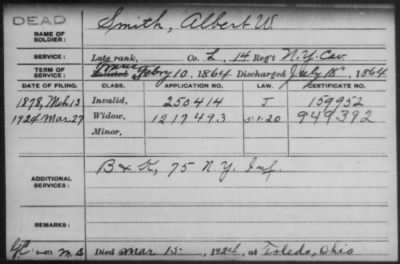 DEAD
NAME OF SOLDIER: Smith, Albert W
SERVICE: Late rank, Co. L, 14 Reg't N.Y. Cav.
TERM OF SERVICE: Enlisted Feby 10, 1864 Discharged July 18", 1864
DATE OF FILING. CLASS. APPLICATION NO. LAW. CERTIFICATE NO.
1878, Mch 13 Invalid, 250414 J 159952
1924 Mar 27 Widow, 1217493 5-1-20 949392
Minor,
ADDITIONAL SERVICES: B & K, 75 N.Y. Inf.
REMARKS:
Died Mar 15, 1924, at Toledo, Ohio